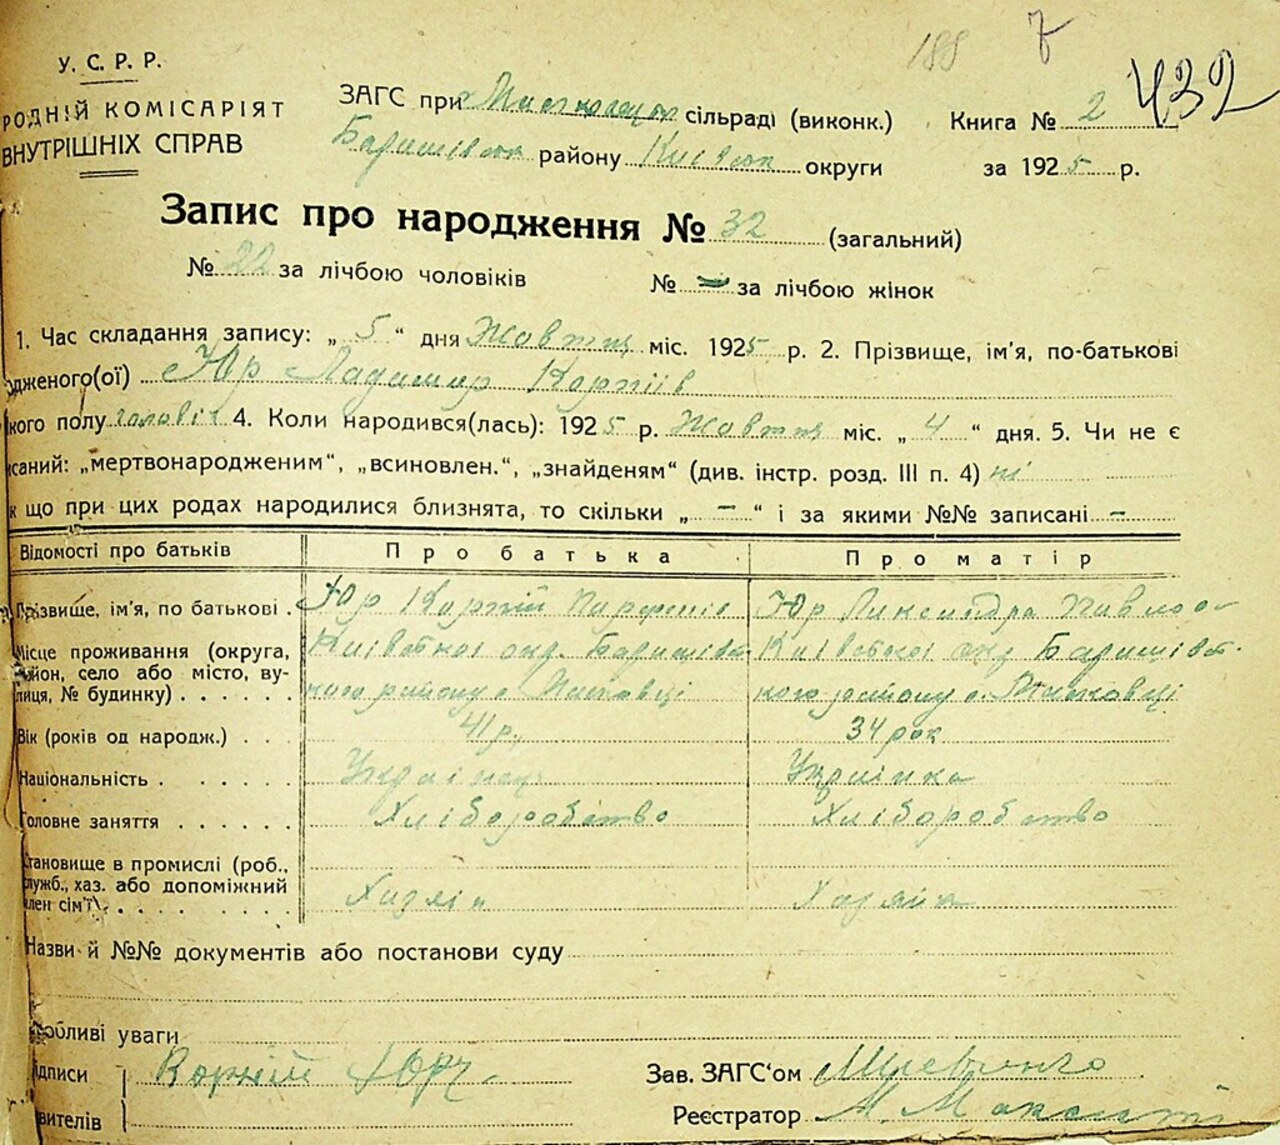 188 7 432
У. С. Р. Р.
РОДНІЙ КОМІСАРІЯТ
ВНУТРІШНІХ СПРАВ
ЗАГС при сільраді (виконк.) Книга № 2
району округи за 1925 р.
Запис про народження № 32 (загальний)
№ 22 за лічбою чоловіків № – за лічбою жінок
1. Час складання запису: „ 5 “ дня Жовтня міс. 1925 р. 2. Прізвище, ім'я, по-батькові
одженого(ої) Юр Ладимир Корніїв
кого полу чоловіч 4. Коли народився(лась): 1925 р. Жовтня міс. „ 4 “ дня. 5. Чи не є
исаний: „мертвонародженим“, „всиновлен.“, „знайденям“ (див. інстр. розд. III п. 4) ні
к що при цих родах народилися близнята, то скільки „ – “ і за якими №№ записані –
Відомості про батьків Про батька Про матір
Прізвище, ім'я, по батькові . Юр Корній Юр Александра
Місце проживання (округа, Київської окр. Київської окр
район, село або місто, ву- кого району с. кого району с.
лиця, № будинку) . . . . . .
Вік (років од народж.) . . . 41 р. 34 рок
Національність . . . . . . Українец Українка
Головне заняття . . . . . . Хліборобство Хліборобство
тановище в промислі (роб.,
служб., хаз. або допоміжний Хазяїн Хазяйка
член сім'ї) . . . . . . . .
Назви й №№ документів або постанови суду
Особливі уваги
ідписи Корній Юр Зав. ЗАГС'ом Шевченко
вителів Реєстратор М